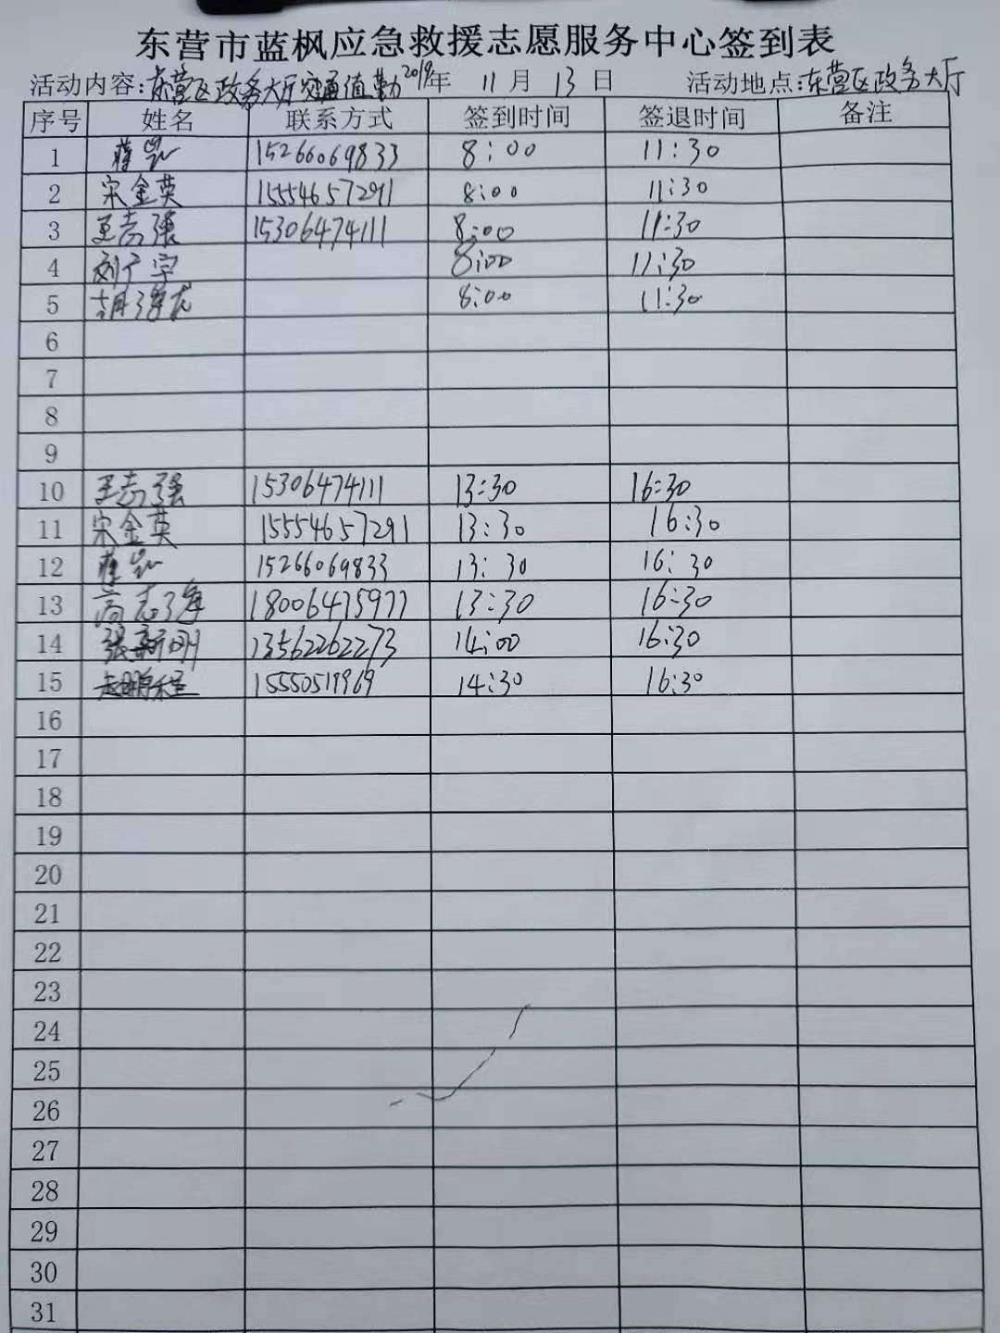 东营市蓝枫应急救援志愿服务中心签到表
活动内容:东营区政务大厅交通值勤 2019年 11月 13日 活动地点:东营区政务大厅
序号 姓名 联系方式 签到时间 签退时间 备注
1 15266069833 8:00 11:30
2 宋金英 15554657291 8:00 11:30
3 王志强 15306474111 8:00 11:30
4 刘广宇 8:00 11:30
5 8:00 11:30
6
7
8
9
10 王志强 15306474111 13:30 16:30
11 宋金英 15554657291 13:30 16:30
12 15266069833 13:30 16:30
13 高志海 18006475977 13:30 16:30
14 张新明 13562262273 14:00 16:30
15 赵鹏程 15550519969 14:30 16:30
16
17
18
19
20
21
22
23
24
25
26
27
28
29
30
31